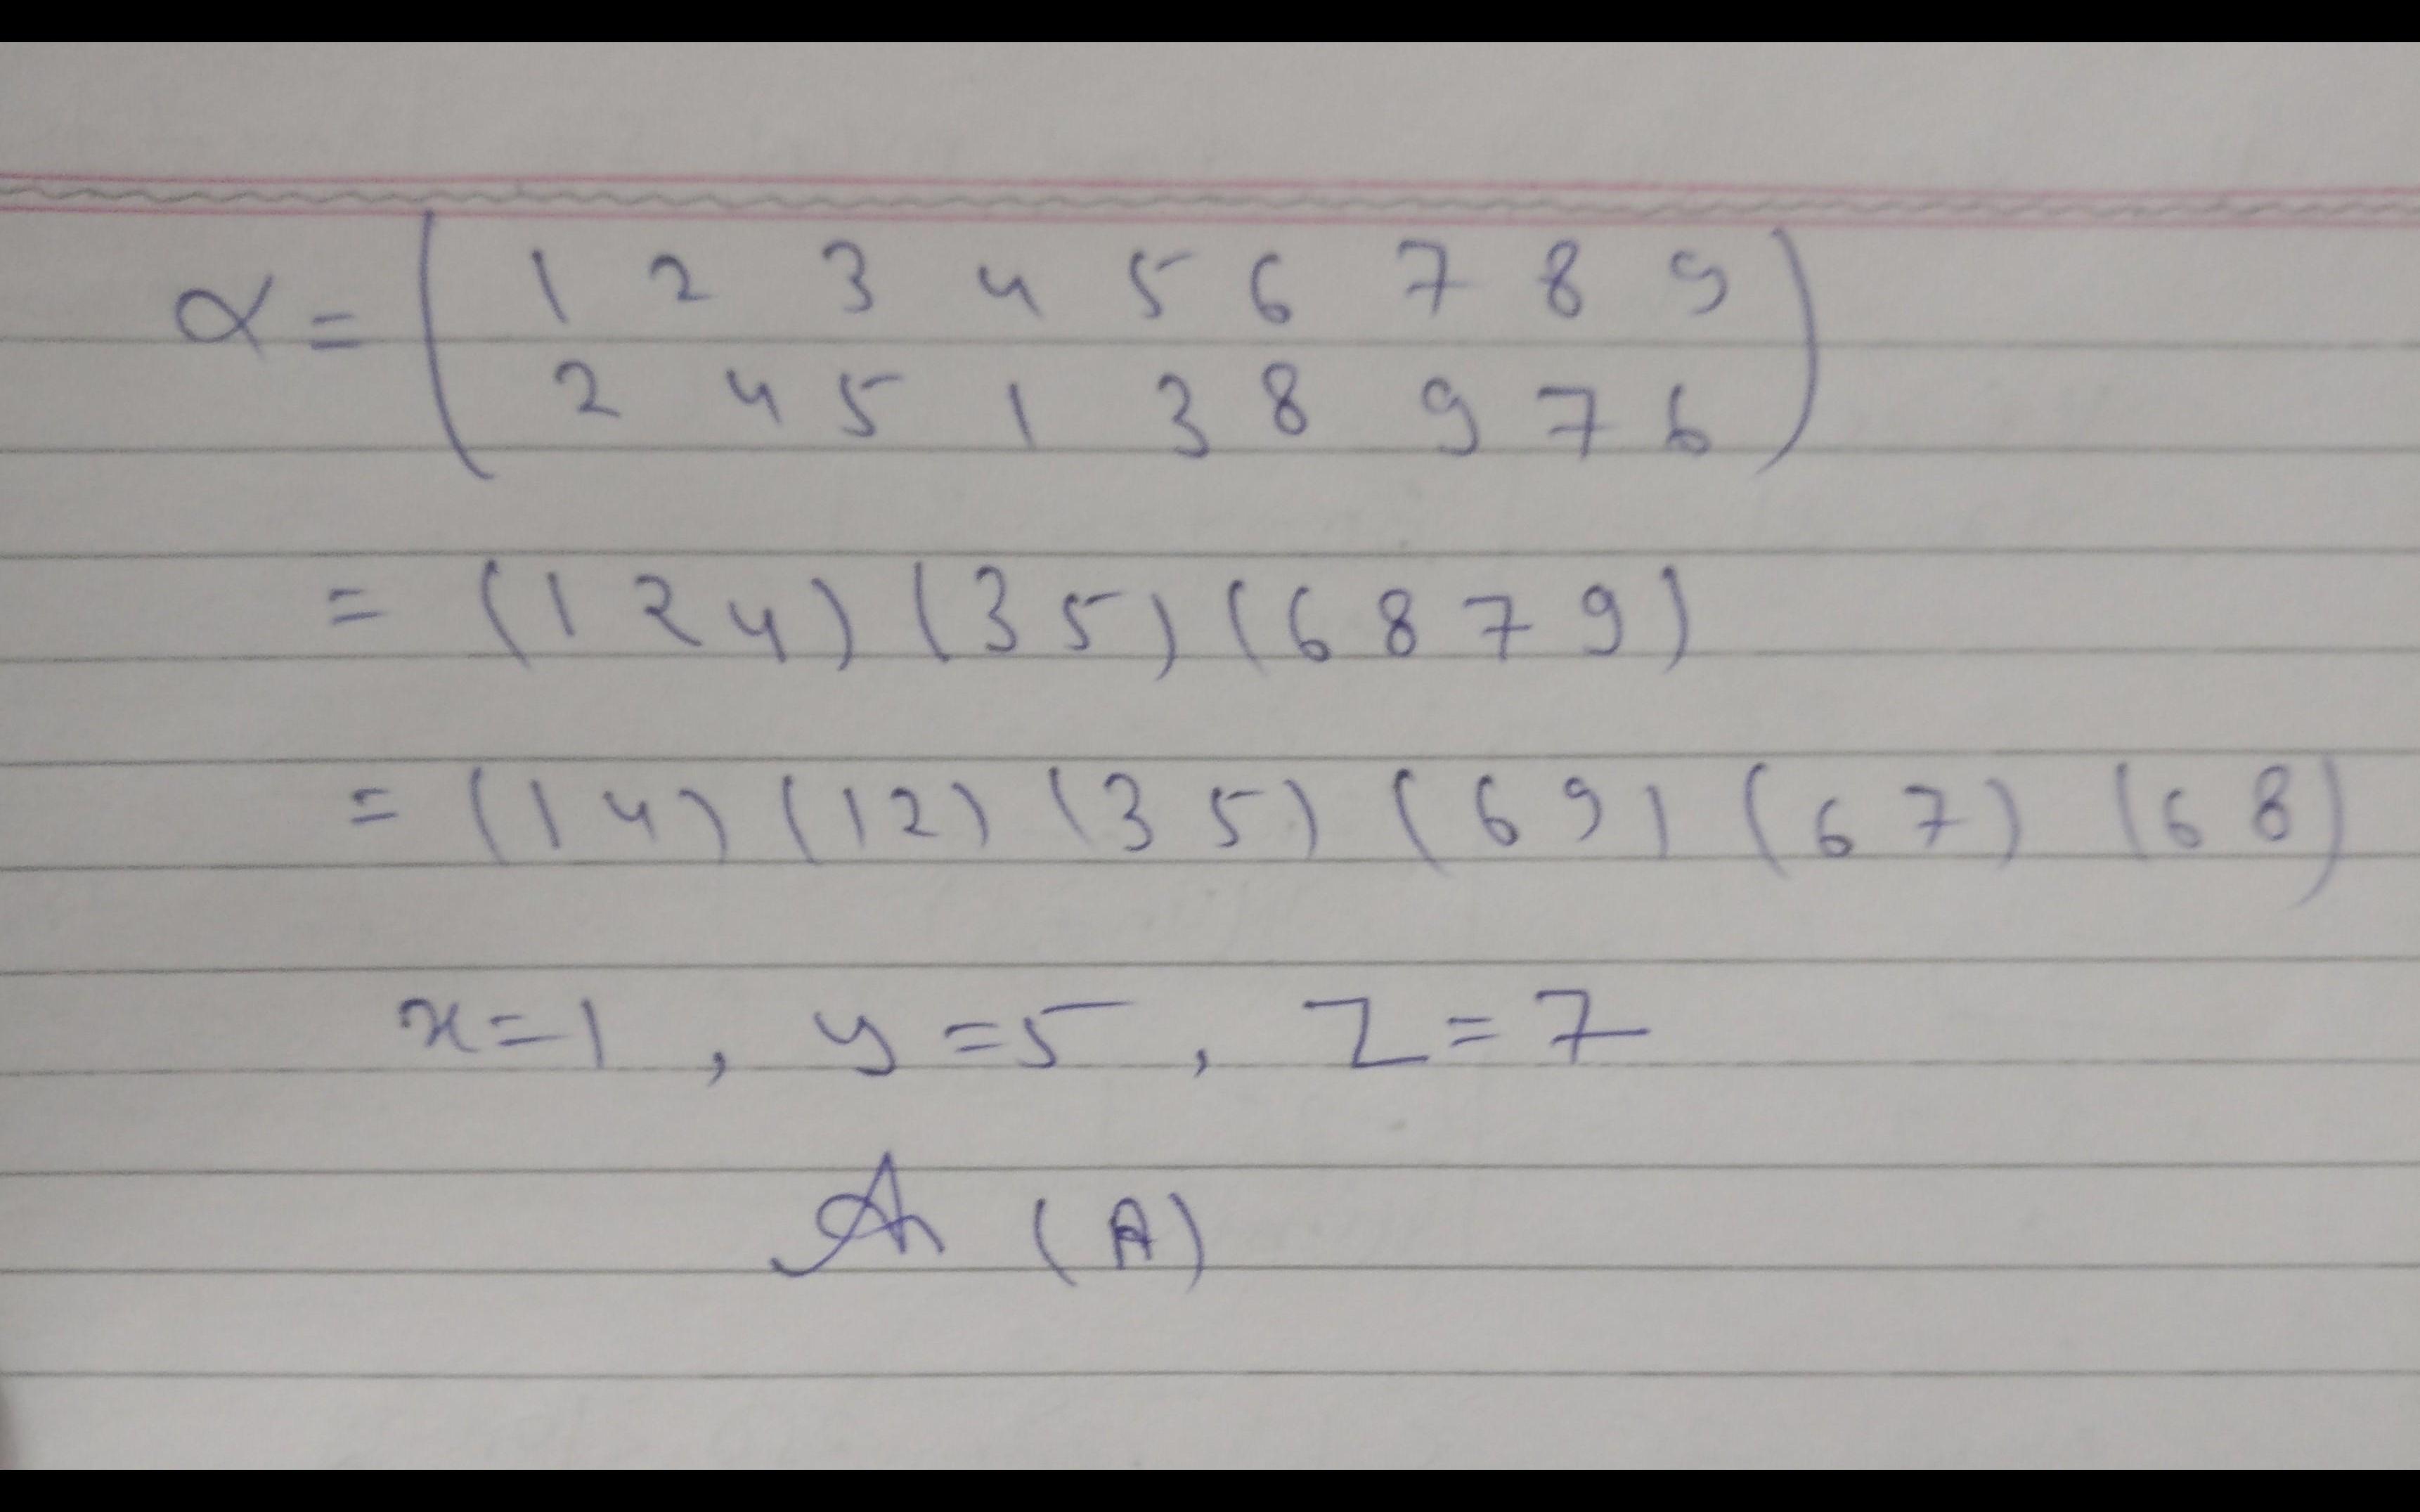 α = ( 1 2 3 4 5 6 7 8 9 )
2 4 5 1 3 8 9 7 6
= (1 2 4) (3 5) (6 8 7 9)
= (1 4) (1 2) (3 5) (6 9) (6 7) (6 8)
x=1 , y=5 , Z=7
A (A)